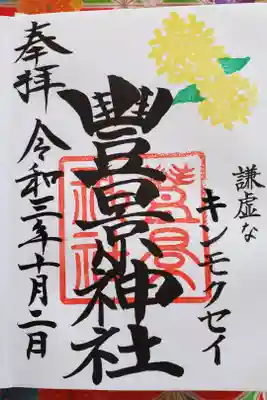 謙虚な
キンモクセイ
豐景神社
奉拝
令和三年十月二日
豊景
神社